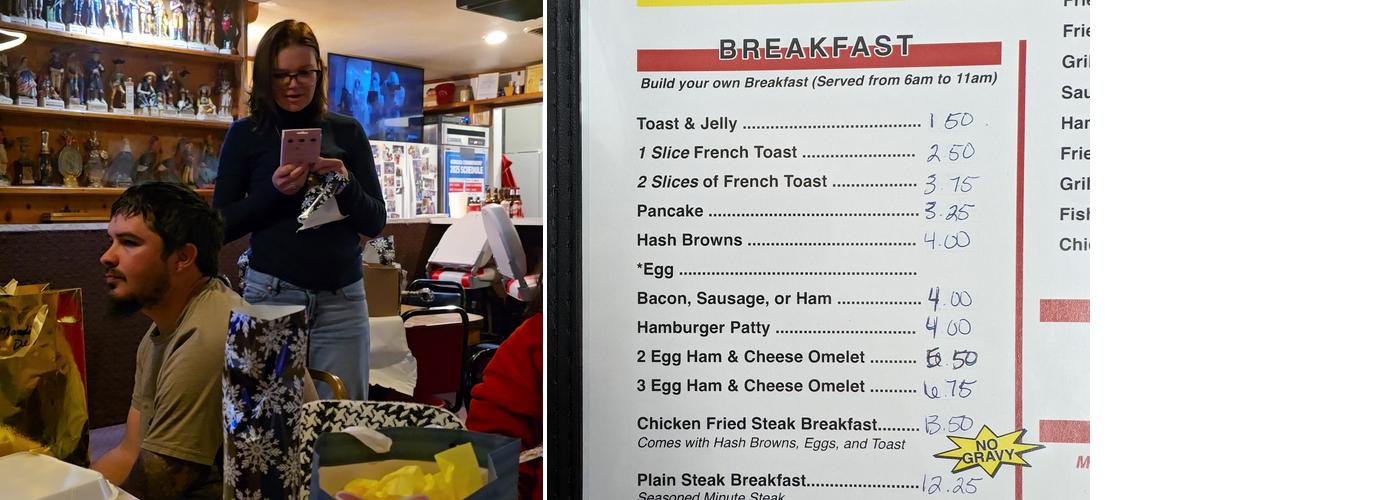 2025 SCHEDULE
BREAKFAST
Build your own Breakfast (Served from 6am to 11am)
Toast & Jelly ........................................ 1 50
1 Slice French Toast ......................... 2 50
2 Slices of French Toast .................. 3.75
Pancake .............................................. 3.25
Hash Browns ..................................... 4.00
*Egg ....................................................
Bacon, Sausage, or Ham .................. 4.00
Hamburger Patty ............................... 4 00
2 Egg Ham & Cheese Omelet .......... 50
3 Egg Ham & Cheese Omelet .......... 6.75
Chicken Fried Steak Breakfast......... 13.50
Comes with Hash Browns, Eggs, and Toast
NO
GRAVY
Plain Steak Breakfast........................ 12.25
Seasoned Minute Steak